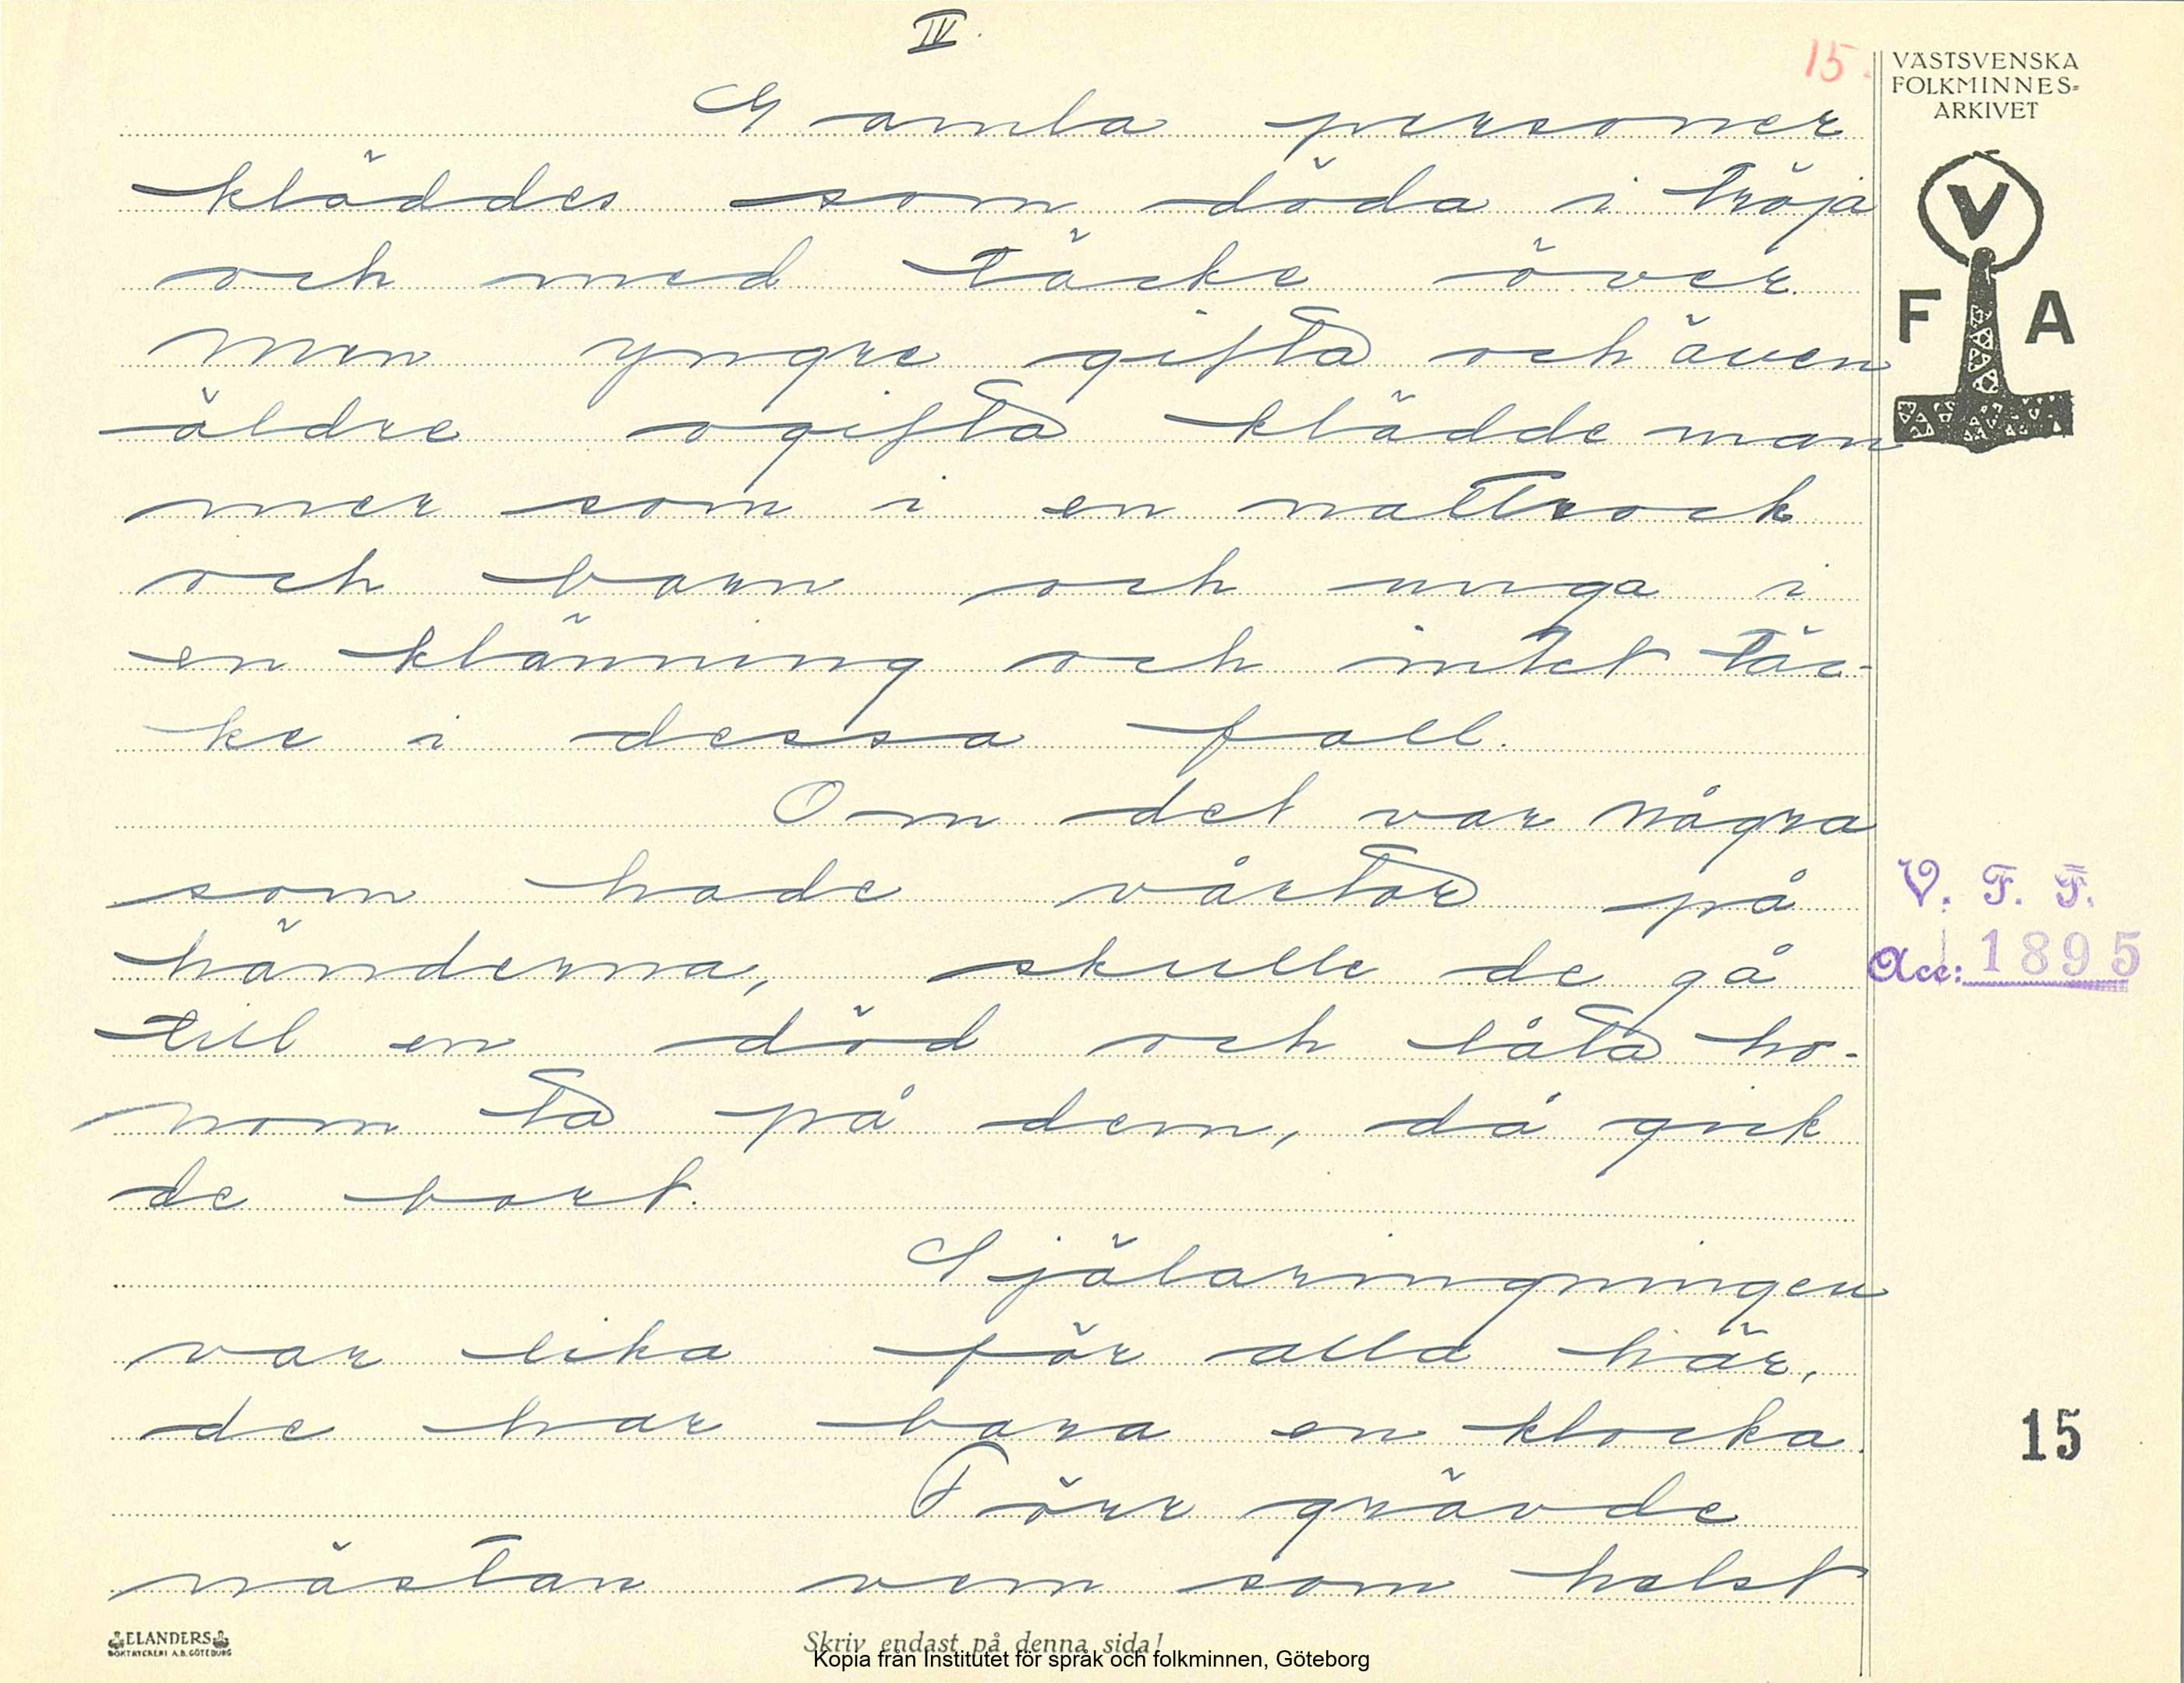 IV.
15.
VÄSTSVENSKA
FOLKMINNES=
ARKIVET
V
F A
Gamla personer
kläddes som döda i tröja
och med täcke över
men yngre gifta och även
äldre ogifta klädde man
mer som i en nattrock
och barn och unga i
en klänning och intet täc-
ke i dessa fall.
Om det var några
som hade vårtor på
händerna, skulle de gå
till en död och låta ho-
nom ta på dem, då gick
de bort.
Själaringningen
var lika för alla här,
de har bara en klocka.
Förr grävde
nästan vem som helst
V. F. F.
Acc: 1895
15
ELANDERS
BOKTRYCKERI A.B. GÖTEBORG
Skriv endast på denna sida!
Kopia från Institutet för språk och folkminnen, Göteborg